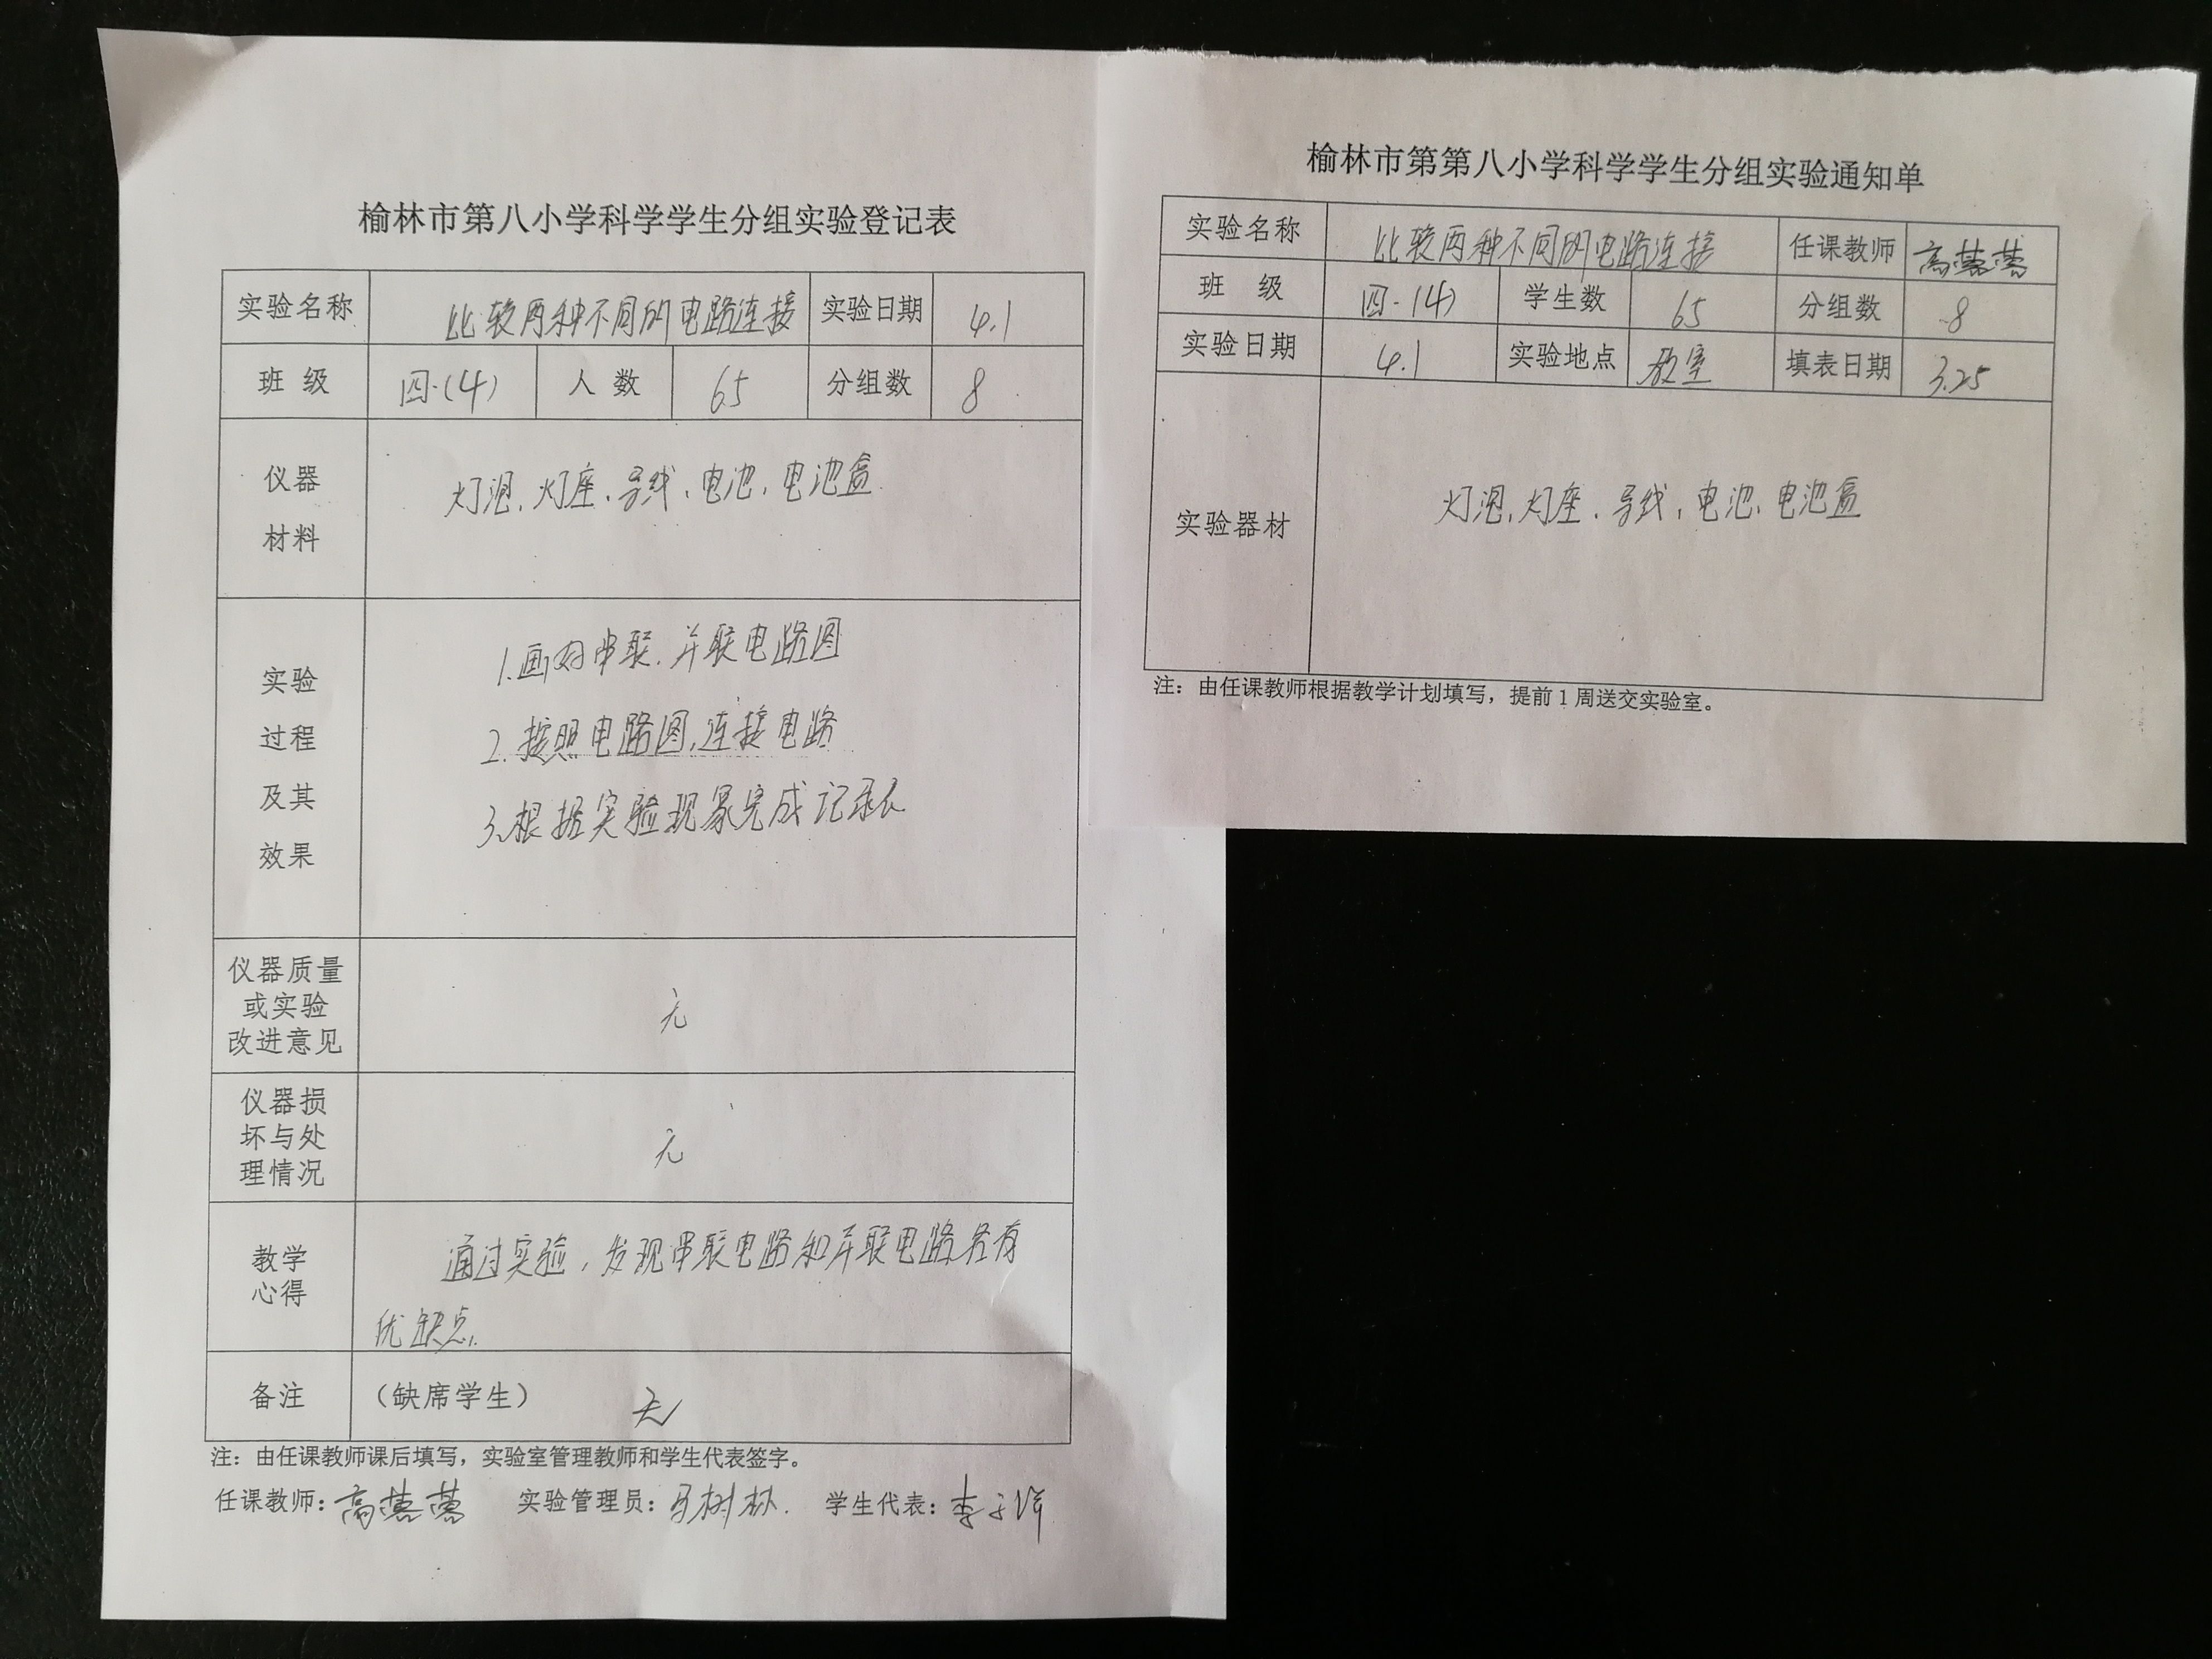 榆林市第八小学科学学生分组实验登记表
实验名称 比较两种不同的电路连接 实验日期 4.1
班 级 四·(4) 人 数 65 分组数 8
仪器
材料
灯泡、灯座、导线、电池、电池盒
实验
过程
及其
效果
1.画好串联、并联电路图
2.按照电路图,连接电路
3.根据实验现象完成记录表
仪器质量
或实验
改进意见
无
仪器损
坏与处
理情况
无
教学
心得
通过实验,发现串联电路和并联电路各有
优缺点.
备注 (缺席学生) 无
注:由任课教师课后填写,实验室管理教师和学生代表签字。
任课教师: 实验管理员: 学生代表:
榆林市第第八小学科学学生分组实验通知单
实验名称 比较两种不同的电路连接 任课教师
班 级 四·(4) 学生数 65 分组数 8
实验日期 4.1 实验地点 教室 填表日期 3.25
实验器材 灯泡、灯座、导线、电池、电池盒
注:由任课教师根据教学计划填写,提前1周送交实验室。